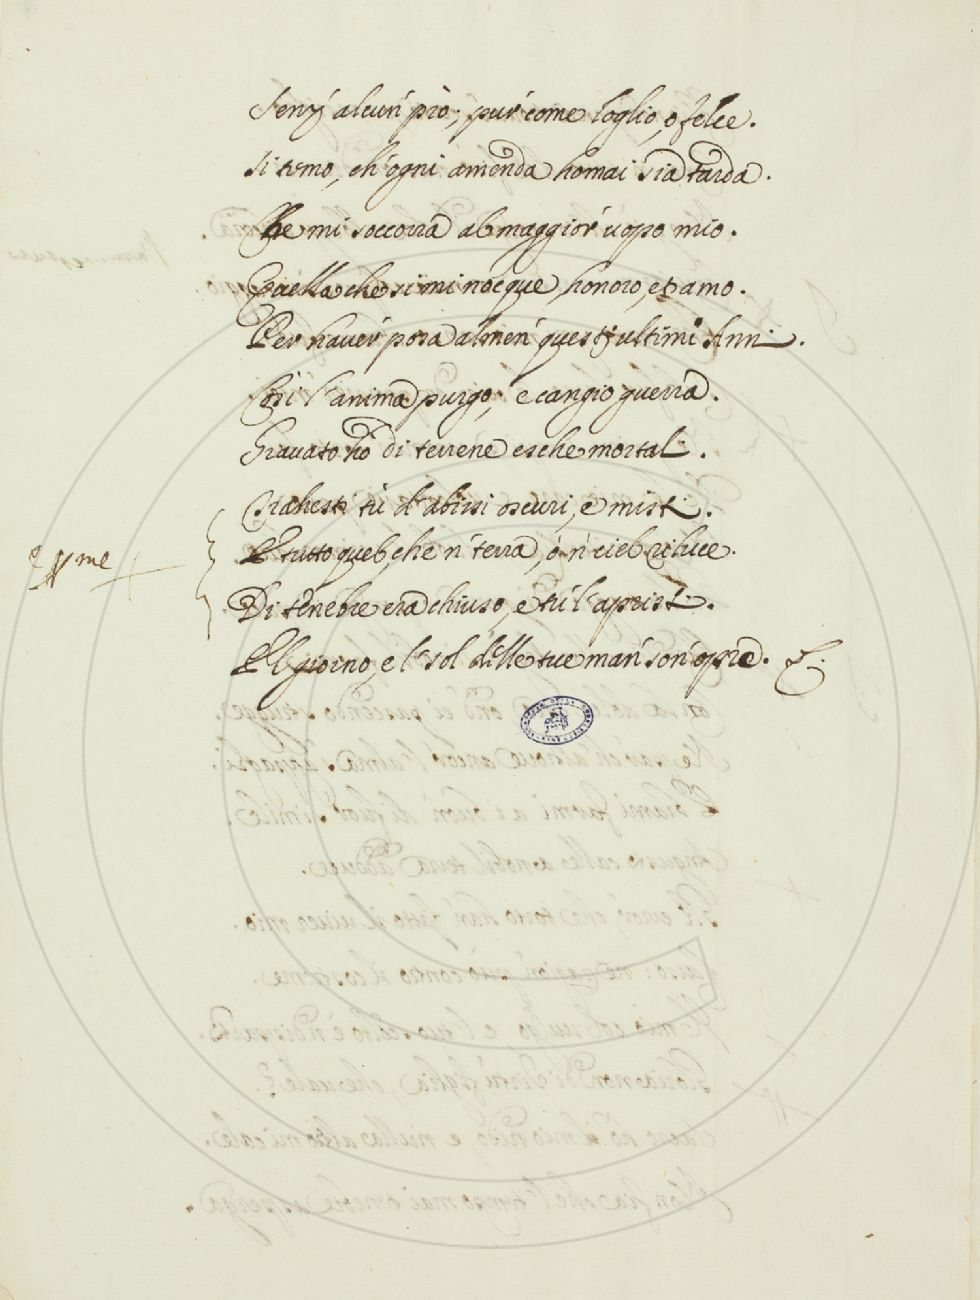 Senz' alcun' prò; pur' come loglio, o felce.
Si temo, ch'ogni amenda homai sia tarda.
Che mi soccorra al maggior' uopo mio.
Quella che si mi nocque, honoro, et amo.
Per haver' posa almen' questi ultimi Anni.
Così l'anima purgo; e cangio guerra.
Gravato hò di terrene esche mortali.
Trahesti tù d'abissi oscuri, e misti.
E tutto quel, che n' terra, ò n' ciel riluce.
Di tenebre era chiuso, e tù l'apristi.
E'l giorno, e'l sol delle tue man' son' opra.